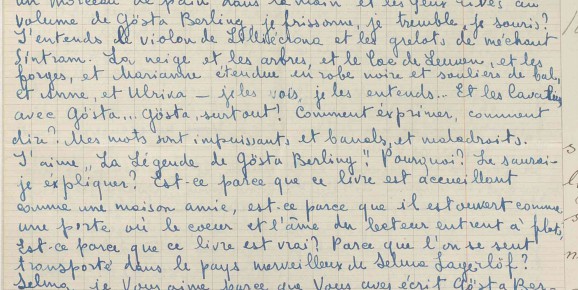 un morceau de pain dans la main et les yeux rivés au
volume de Gösta Berling, je frissonne, je tremble, je souris?
J'entends le violon de Lilliécrona et les grelots de méchant
Sintram. La neige et les arbres, et le Lac de Leuven, et les
forges, et Marianne étendue en robe noire et souliers de bal,
et Anne, et Ulrika – je les vois, je les entends... Et les cavaliers
avec Gösta... Gösta, surtout! Comment exprimer, comment
dire? Mes mots sont impuissants et banals, et maladroits.
J'aime „La Légende de Gösta Berling". Pourquoi? Le saurai-
je expliquer? Est-ce parce que ce livre est accueillant
comme une maison amie, est-ce parce que il est ouvert comme
une porte où le coeur et l'âme du lecteur entrent à flots,
Est-ce parce que ce livre est vrai? Parce que l'on se sent
transporté dans le pays merveilleux de Selma Lagerlöf?
Selma, je Vous aime parce que Vous avez écrit Gösta Ber-